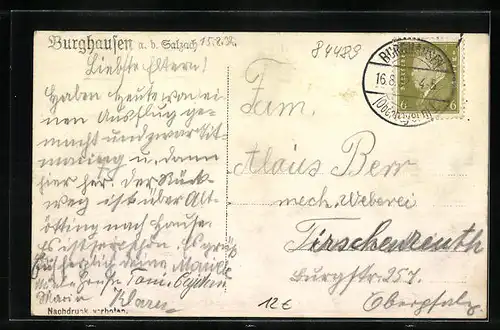 Burghausen a. d. Salzach 15.8.32.
84489
Liebste Eltern!
Haben heute von ei-
nen Ausflug ge-
macht und zwar Tit-
moning u. dann
hier her. Der Rück-
weg ist über Alt-
ötting nach Hause.
Es ist sehr schön. Es grüßt
Euch herzlich
Toni
Maria Klara
Nachdruck verboten.
BURGHAUSEN
16.8.
(Oberbayern)
6 6
Fam.
Alois Berr
mech. Weberei
Tirschenreuth
Burgstr. 257
Oberpfalz
12€